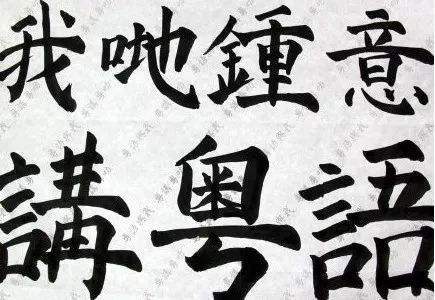 我哋鍾意
講粤語